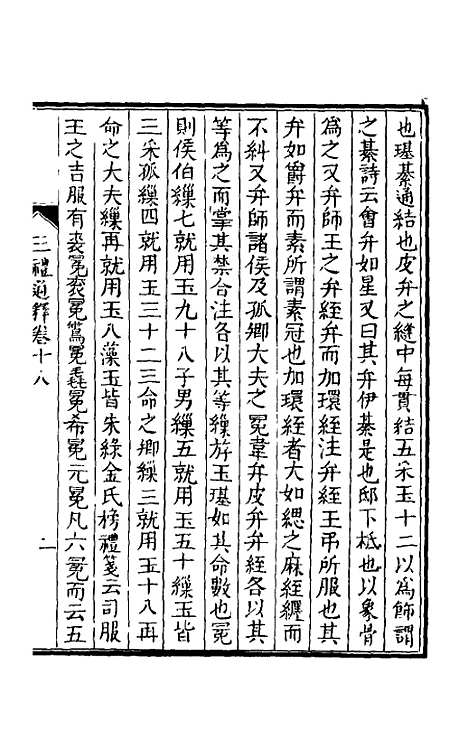 也璂綦通結也皮弁之縫中每貫結五采玉十二以為飾謂
之綦詩云會弁如星又曰其弁伊綦是也邸下柢也以象骨
為之又弁師王之弁絰弁而加環絰注弁絰王弔所服也其
弁如爵弁而素所謂素冠也加環絰者大如緦之麻絰纏而
不糾又弁師諸侯及孤卿大夫之冕韋弁皮弁弁絰各以其
等為之而掌其禁合注各以其等繅斿玉璂如其命數也冕
則侯伯繅七就用玉九十八子男繅五就用玉五十繅玉皆
三采孤繅四就用玉三十二三命之卿繅三就用玉十八再
命之大夫繅再就用玉八藻玉皆朱綠金氏榜禮箋云司服
王之吉服有裘冕袞冕鷩冕毳冕希冕元冕凡六冕而云五
三禮通釋卷十八
二